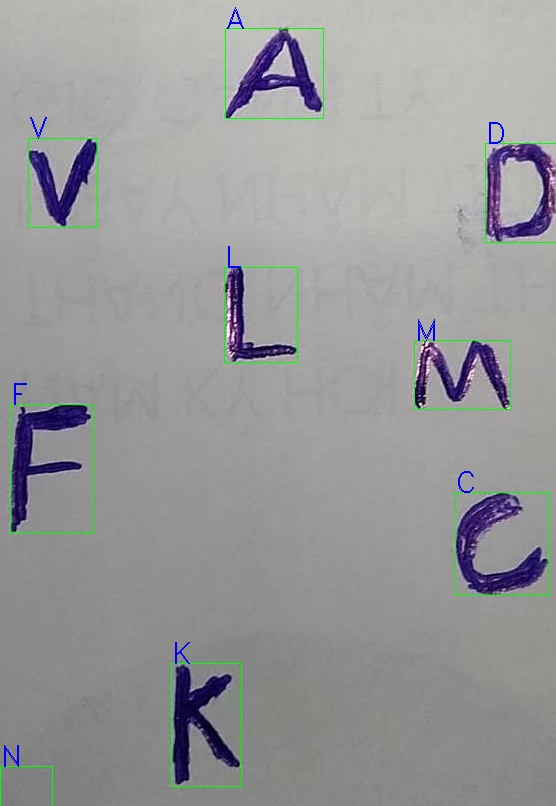 A
A
V
V
D
D
L
L
M
M
F
F
C
C
K
K
N